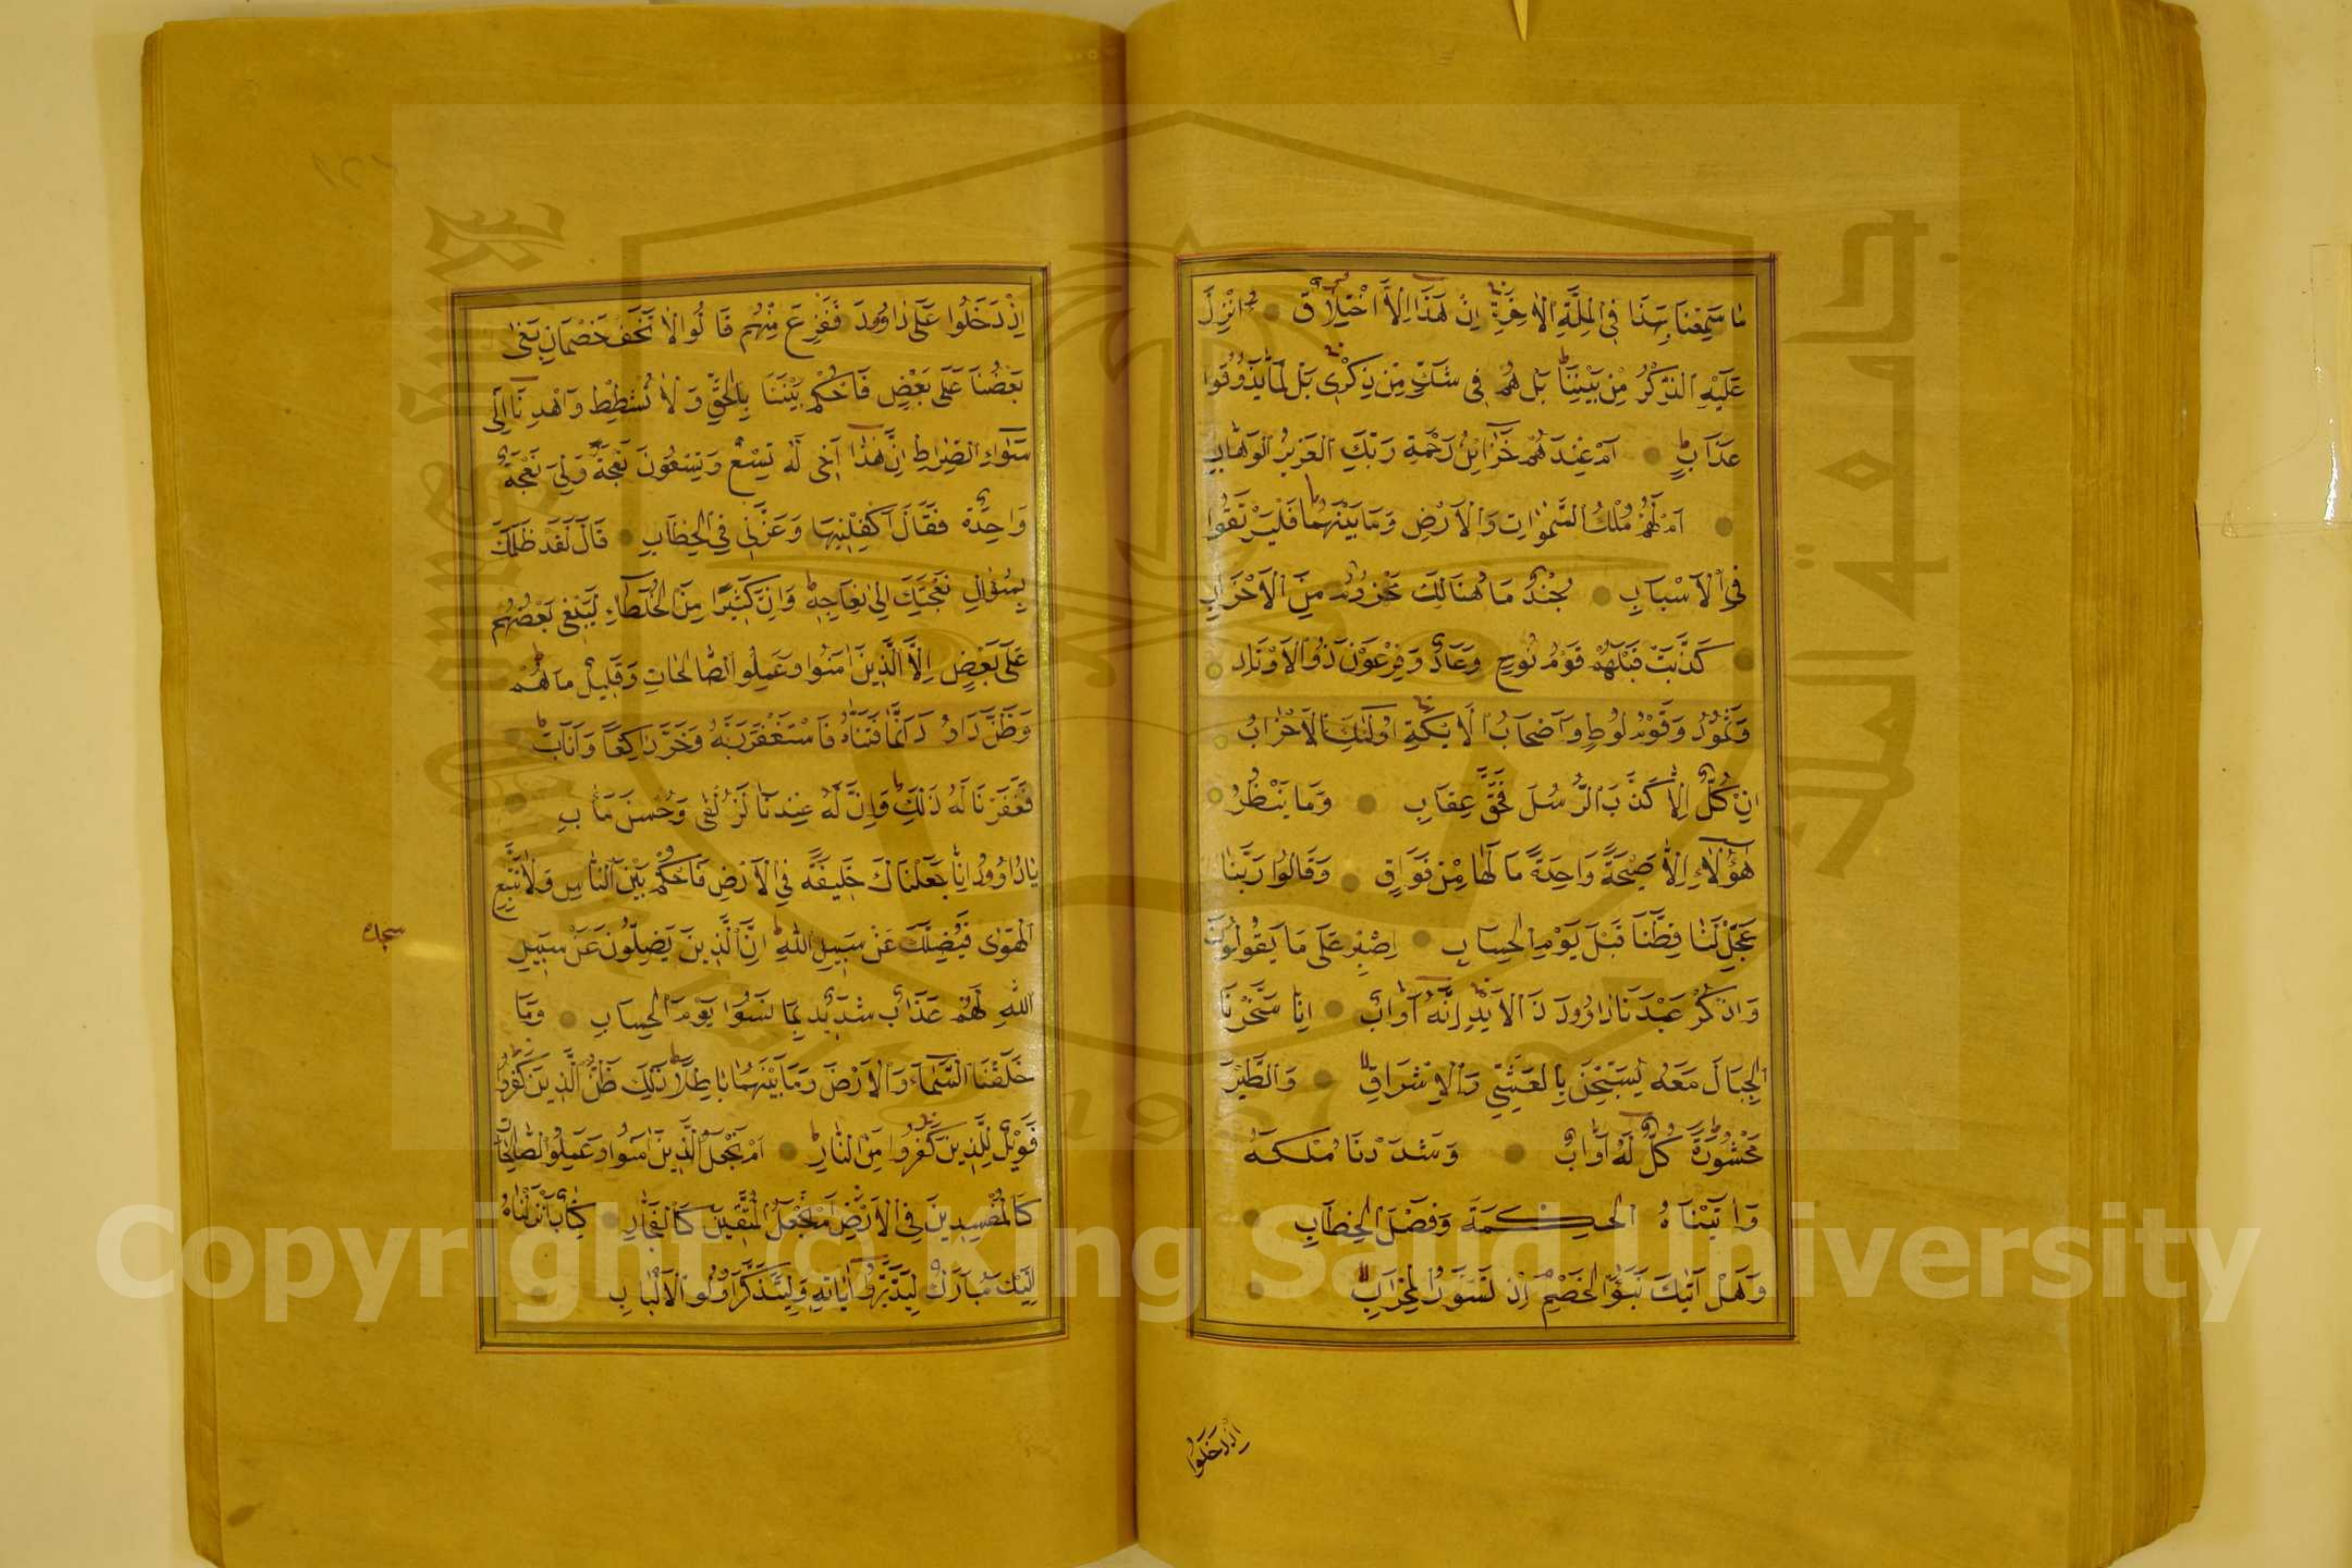 مَا سَمِعْنَا بِهَذَا فِي الْمِلَّةِ الْاٰخِرَةِ اِنْ هَذَا اِلَّا اخْتِلَاقٌ ءَاُنْزِلَ
عَلَيْهِ الذِّكْرُ مِنْ بَيْنِنَا بَلْ هُمْ فِي شَكٍّ مِنْ ذِكْرِي بَلْ لَمَّا يَذُوقُوا
عَذَابِ اَمْ عِنْدَهُمْ خَزَائِنُ رَحْمَةِ رَبِّكَ الْعَزِيزِ الْوَهَّابِ
اَمْ لَهُمْ مُلْكُ السَّمٰوَاتِ وَالْاَرْضِ وَمَا بَيْنَهُمَا فَلْيَرْتَقُوا
فِي الْاَسْبَابِ جُنْدٌ مَا هُنَالِكَ مَهْزُومٌ مِنَ الْاَحْزَابِ
كَذَّبَتْ قَبْلَهُمْ قَوْمُ نُوحٍ وَعَادٌ وَفِرْعَوْنُ ذُو الْاَوْتَادِ
وَثَمُودُ وَقَوْمُ لُوطٍ وَاَصْحَابُ الْاَيْكَةِ اُولٰئِكَ الْاَحْزَابُ
اِنْ كُلٌّ اِلَّا كَذَّبَ الرُّسُلَ فَحَقَّ عِقَابِ وَمَا يَنْظُرُ
هٰؤُلَاءِ اِلَّا صَيْحَةً وَاحِدَةً مَا لَهَا مِنْ فَوَاقٍ وَقَالُوا رَبَّنَا
عَجِّلْ لَنَا قِطَّنَا قَبْلَ يَوْمِ الْحِسَابِ اِصْبِرْ عَلَى مَا يَقُولُونَ
وَاذْكُرْ عَبْدَنَا دَاوُودَ ذَا الْاَيْدِ اِنَّهُ اَوَّابٌ اِنَّا سَخَّرْنَا
الْجِبَالَ مَعَهُ يُسَبِّحْنَ بِالْعَشِيِّ وَالْاِشْرَاقِ وَالطَّيْرَ
مَحْشُورَةً كُلٌّ لَهُ اَوَّابٌ وَشَدَدْنَا مُلْكَهُ
وَاٰتَيْنَاهُ الْحِكْمَةَ وَفَصْلَ الْخِطَابِ
وَهَلْ اَتٰيكَ نَبَؤُا الْخَصْمِ اِذْ تَسَوَّرُوا الْمِحْرَابَ
اِذْ دَخَلُوا
اِذْ دَخَلُوا عَلَى دَاوُودَ فَفَزِعَ مِنْهُمْ قَالُوا لَا تَخَفْ خَصْمَانِ بَغَى
بَعْضُنَا عَلَى بَعْضٍ فَاحْكُمْ بَيْنَنَا بِالْحَقِّ وَلَا تُشْطِطْ وَاهْدِنَا اِلَى
سَوَاءِ الصِّرَاطِ اِنَّ هٰذَا اَخِي لَهُ تِسْعٌ وَتِسْعُونَ نَعْجَةً وَلِيَ نَعْجَةٌ
وَاحِدَةٌ فَقَالَ اَكْفِلْنِيهَا وَعَزَّنِي فِي الْخِطَابِ قَالَ لَقَدْ ظَلَمَكَ
بِسُؤَالِ نَعْجَتِكَ اِلَى نِعَاجِهِ وَاِنَّ كَثِيرًا مِنَ الْخُلَطَاءِ لَيَبْغِي بَعْضُهُمْ
عَلَى بَعْضٍ اِلَّا الَّذِينَ اٰمَنُوا وَعَمِلُوا الصَّالِحَاتِ وَقَلِيلٌ مَا هُمْ
وَظَنَّ دَاوُدُ اَنَّمَا فَتَنَّاهُ فَاسْتَغْفَرَ رَبَّهُ وَخَرَّ رَاكِعًا وَاَنَابَ
فَغَفَرْنَا لَهُ ذَلِكَ وَاِنَّ لَهُ عِنْدَنَا لَزُلْفَى وَحُسْنَ مَاٰبٍ
يَا دَاوُودُ اِنَّا جَعَلْنَاكَ خَلِيفَةً فِي الْاَرْضِ فَاحْكُمْ بَيْنَ النَّاسِ وَلَا تَتَّبِعِ
الْهَوَى فَيُضِلَّكَ عَنْ سَبِيلِ اللهِ اِنَّ الَّذِينَ يَضِلُّونَ عَنْ سَبِيلِ
اللهِ لَهُمْ عَذَابٌ شَدِيدٌ بِمَا نَسُوا يَوْمَ الْحِسَابِ وَمَا
خَلَقْنَا السَّمَاءَ وَالْاَرْضَ وَمَا بَيْنَهُمَا بَاطِلًا ذَلِكَ ظَنُّ الَّذِينَ كَفَرُوا
فَوَيْلٌ لِلَّذِينَ كَفَرُوا مِنَ النَّارِ اَمْ نَجْعَلُ الَّذِينَ اٰمَنُوا وَعَمِلُوا الصَّالِحَاتِ
كَالْمُفْسِدِينَ فِي الْاَرْضِ اَمْ نَجْعَلُ الْمُتَّقِينَ كَالْفُجَّارِ كِتَابٌ اَنْزَلْنَاهُ
اِلَيْكَ مُبَارَكٌ لِيَدَّبَّرُوا اٰيَاتِهِ وَلِيَتَذَكَّرَ اُولُوا الْاَلْبَابِ
سجدة
Copyright © King Saud University